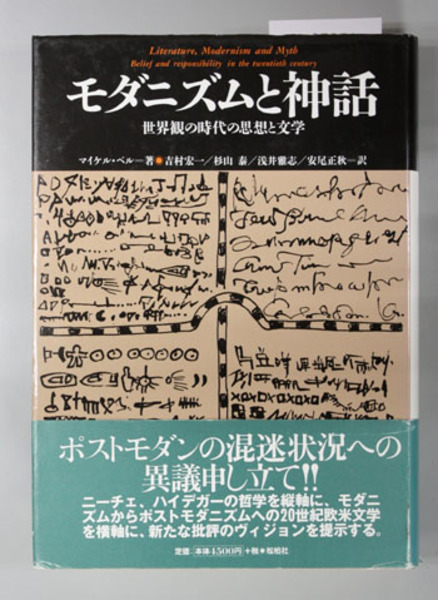 Literature, Modernism and Myth
Belief and responsibility in the twentieth century
モダニズムと神話
世界観の時代の思想と文学
マイケル・ベル─著●吉村宏一／杉山 泰／浅井雅志／安尾正秋─訳
ポストモダンの混迷状況への
異議申し立て!!
ニーチェ、ハイデガーの哲学を縦軸に、モダニ
ズムからポストモダニズムへの20世紀欧米文学
を横軸に、新たな批評のヴィジョンを提示する。
定価 本体4500円 +税●松柏社